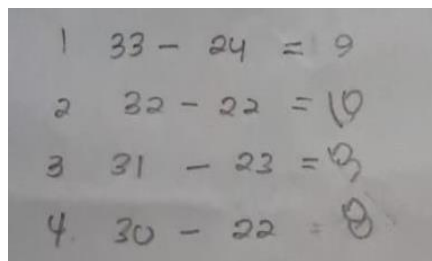 1 33 - 24 = 9
2 32 - 22 = 10
3 31 - 23 =
4. 30 - 22 = 8